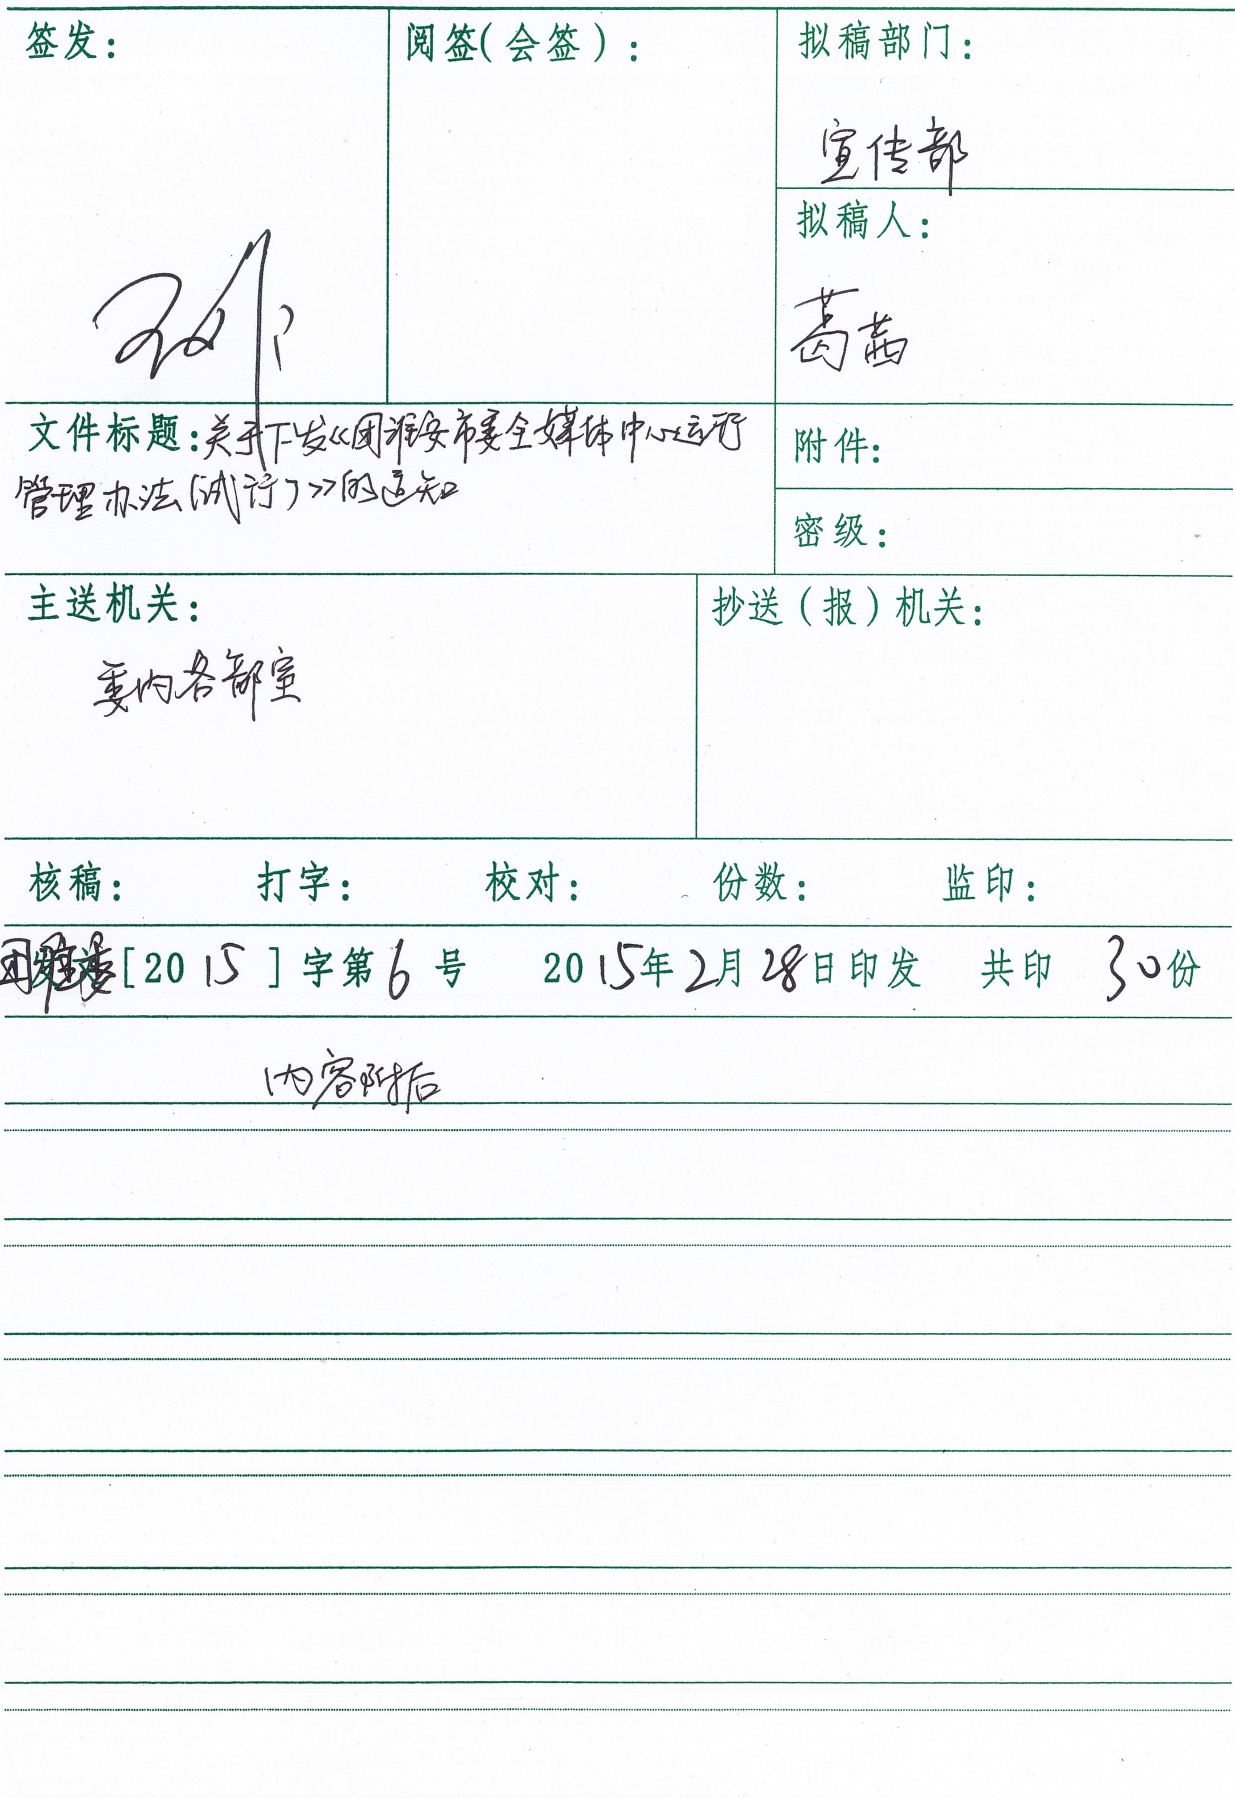 签发：
阅签（会签）：
拟稿部门：
宣传部
拟稿人：
葛茜
文件标题：关于下发《团淮安市委全媒体中心运行
管理办法（试行）》的通知
附件：
密级：
主送机关：
委内各部室
抄送（报）机关：
核稿： 打字： 校对： 份数： 监印：
团淮委[2015]字第6号 2015年2月28日印发 共印 30份
内容附后